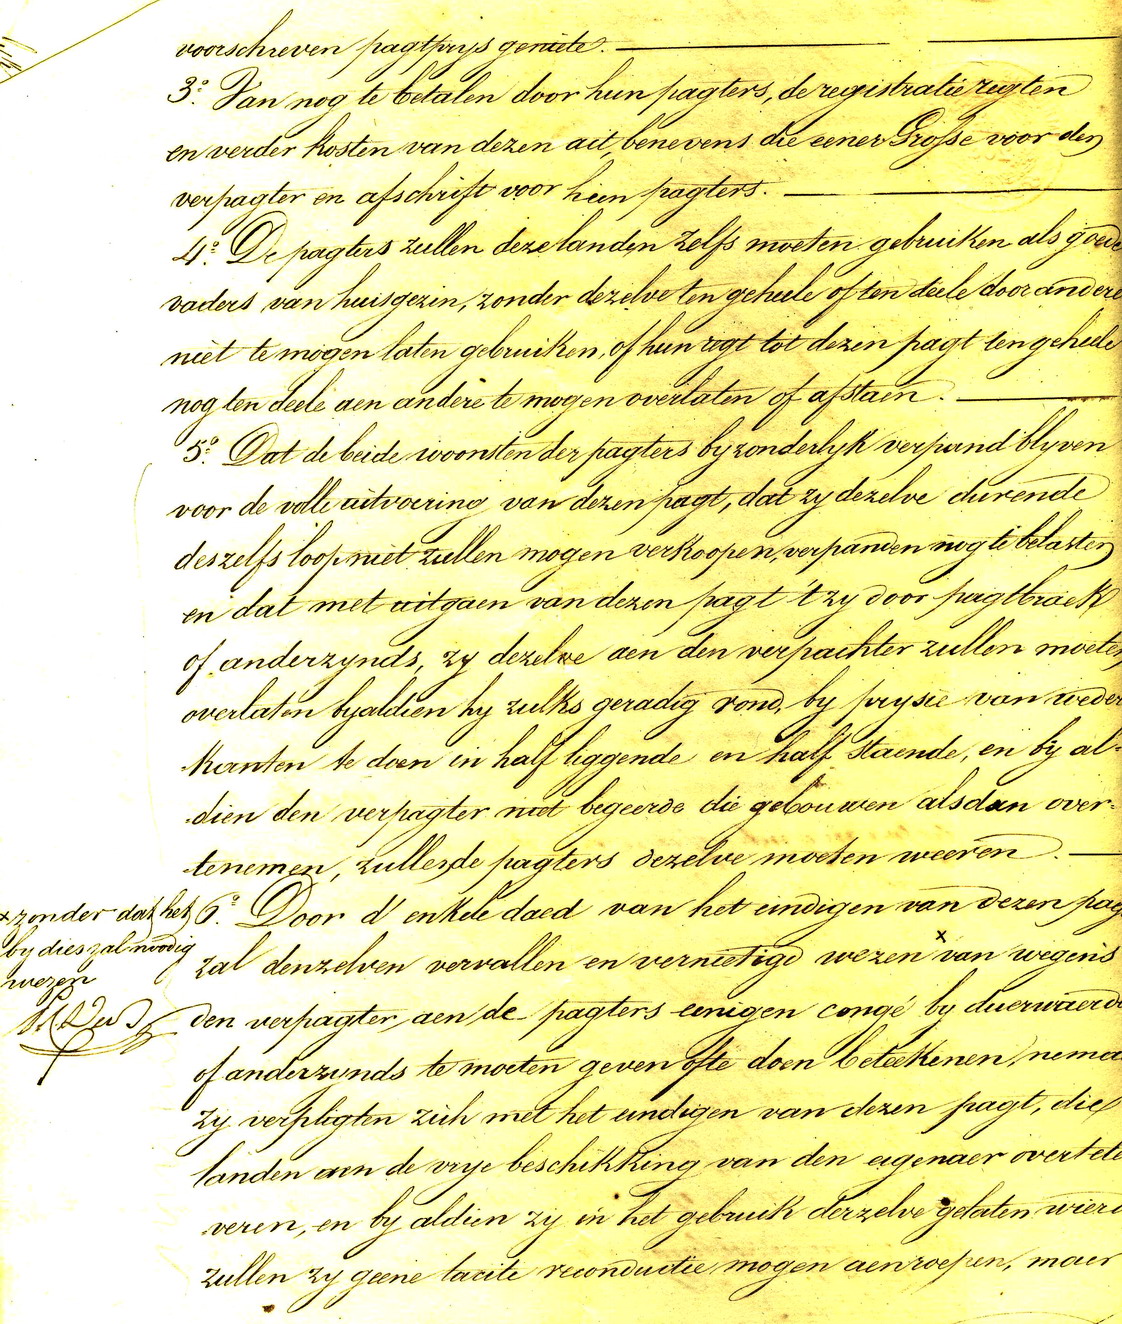 voorschreven pagtprys geniete.
3.° Van nog te betalen door hun pagters, de registratie regten
en verder kosten van dezen ait, benevens die eener Grosse voor den
verpagter en afschrift voor hun pagters.
4.° De pagters zullen deze landen zelfs moeten gebruiken als goede
vaders van huisgezin, zonder dezelve ten geheele of ten deele door andere
niet te mogen laten gebruiken, of hun regt tot dezen pagt ten geheele
nog ten deele aen andere te mogen overlaten of afstaen.
5.° Dat de beide woonsten der pagters byzonderlyk verpand blyven
voor de volle uitvoering van dezen pagt, dat zy dezelve durende
deszelfs loop niet zullen mogen verkoopen, verpanden nog te belasten
en dat met uitgaen van dezen pagt 't zy door pagtbraek
of anderzynds, zy dezelve aen den verpachter zullen moeten
overlaten byaldien hy zulks geradig vond, by prysie van weder
kanten te doen in half liggende en half staende, en by al-
dien den verpagter niet begeerde die gebouwen alsdan over-
tenemen, zullen de pagters dezelve moeten weeren.
x zonder dat het
by dies zal noodig
wezen
6.° Door d' enkele daed van het eindigen van dezen pag
zal denzelven vervallen en vernietigd wezen x van wegens
den verpagter aen de pagters eenigen congé by duerwaerde
of anderzynds te moeten geven ofte doen beteekenen, nemae
zy verpligten zich met het eindigen van dezen pagt, die
landen aen de vrye beschikking van den eigenaer overtele
veren, en by aldien zy in het gebruik derzelve gelaten wierd
zullen zy geene tacite reconductie mogen aenroepen, maer